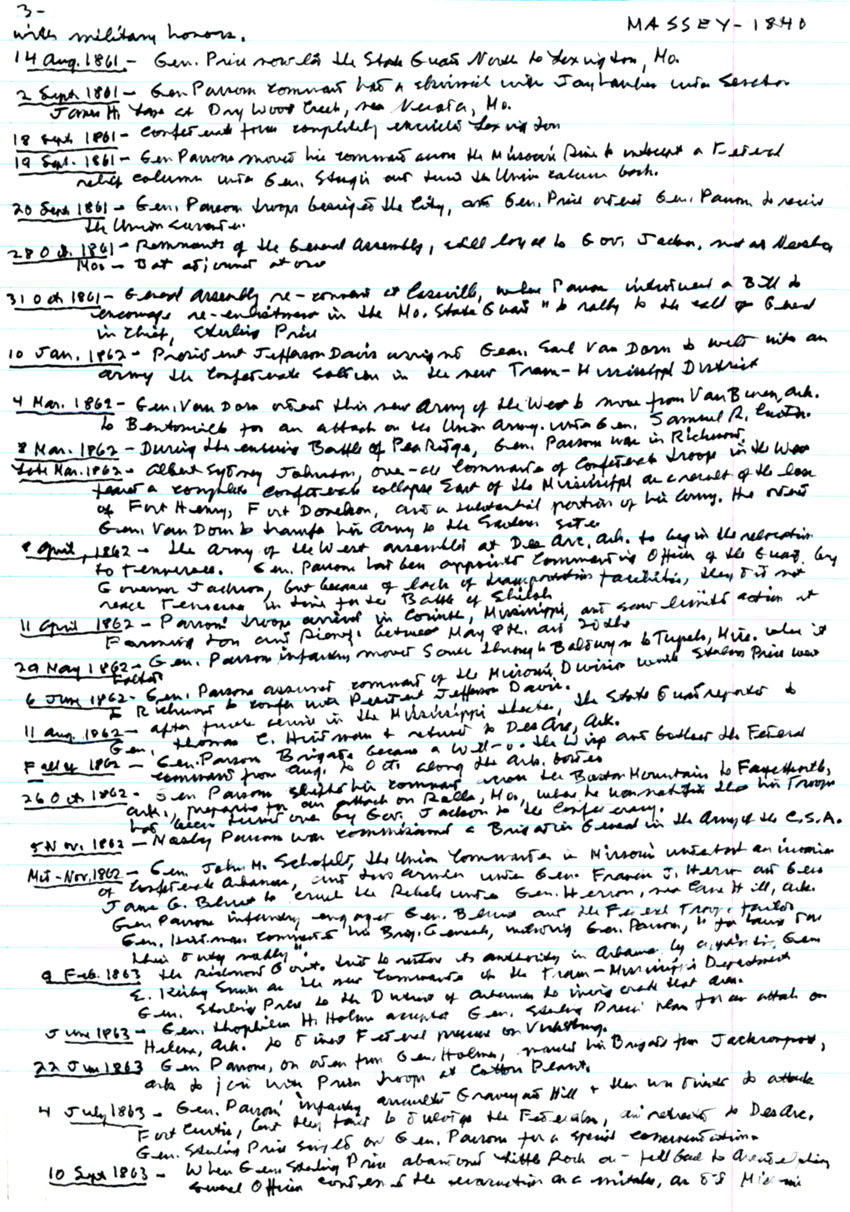 3-
MASSEY-1840
with military honors.
14 Aug. 1861 - Gen. Price now led the State Guard North to Lexington, Mo.
2 Sept 1861 - Gen Parsons command had a skirmish with Jayhawkers under Senator
James H. Lane at Dry Wood Creek, near Nevada, Mo.
18 Sept 1861 - Confederate forces completely encircled Lexington
19 Sept. 1861 - Gen Parsons moved his command across the Missouri River to intercept a Federal
relief column under Gen. Sturgis and turned the Union column back.
20 Sept 1861 - Gen. Parsons troops besieged the City, and Gen. Price ordered Gen. Parsons to receive
the Union surrender.
28 Oct. 1861 - Remnants of the General Assembly, still loyal to Gov. Jackson, met at Neosho
Mo. - But adjourned at once
31 Oct 1861 - General Assembly re-convened at Cassville, where Parsons introduced a Bill to
encourage re-enlistment in the Mo. State Guard "to rally to the call of General
in Chief, Sterling Price
10 Jan. 1862 - President Jefferson Davis assigned Gen. Earl Van Dorn to weld into an
army the Confederate Soldiers in the new Trans-Mississippi District
4 Mar. 1862 - Gen. Van Dorn ordered this new Army of the West to move from Van Buren, Ark.
to Bentonville for an attack on the Union Army under Gen. Samuel R. Curtis.
8 Mar. 1862 - During the ensuing Battle of Pea Ridge, Gen. Parsons was in Richmond.
Late Mar. 1862 - Albert Sydney Johnson, over-all Commander of Confederate troops in the West
feared a complete Confederate collapse East of the Mississippi as a result of the loss
of Fort Henry, Fort Donelson, and a substantial portion of his Army. He ordered
Gen. Van Dorn to transfer his Army to the Eastern side
8 April, 1862 - The Army of the West assembled at Des Arc, Ark. to begin the relocation
to Tennessee. Gen. Parsons had been appointed Commanding Officer of the Guard by
Governor Jackson, but because of lack of transportation facilities, they did not
reach Tennessee in time for the Battle of Shiloh
11 April 1862 - Parsons' troops arrived in Corinth, Mississippi, and saw limited action at
Farmington and between May 8th and 20th
29 May 1862 - Gen. Parsons infantry moved South through Baldwyn to Tupelo, Miss. when it
halted
6 June 1862 - Gen. Parsons assumed command of the Missouri Division while Sterling Price went
to Richmond to confer with President Jefferson Davis.
11 Aug 1862 - after futile service in the Mississippi theater, the State Guard reported to
Gen. Thomas C. Hindman & returned to Des Arc, Ark.
Fall of 1862 - Gen. Parsons Brigade became a Will-o-the Wisp and battled the Federal
command from Aug. to Oct. along the Ark. border
26 Oct 1862 - Gen Parsons shifted his command across the Boston Mountains to Fayetteville,
Ark., preparing for an attack on Rolla, Mo., where he was notified that his Troops
had been turned over by Gov. Jackson to the Confederacy.
5 Nov. 1862 - Mosby Parsons was commissioned a Brigadier General in the Army of the C.S.A.
Mid-Nov. 1862 - Gen. John M. Schofield, the Union Commander in Missouri undertook an invasion
of Confederate Arkansas, and two armies under Gen. Francis J. Herron and Gen
James G. Blunt to crush the Rebels under Gen. Herron, near Cane Hill, Ark.
Gen Parsons infantry engaged Gen. Blunt and the Federal Troops
Gen. Hindman commended his Brig. Generals, including Gen. Parsons, "for having done
their duty nobly".
9 Feb. 1863 The Richmond Govt. tried to restore its authority in Arkansas by appointing Gen
E. Kirby Smith as the new Commander of the Trans-Mississippi Department
Gen. Sterling Price to the District of Arkansas to that area.
June 1863 - Gen. Theophilus H. Holmes accepted Gen. Sterling Price's plan for an attack on
Helena, Ark. to divert Federal pressure on Vicksburg.
22 Jun 1863 Gen Parsons, on orders from Gen. Holmes, moved his Brigade from Jacksonport,
Ark to join with Price's troops at Cotton Plant.
4 July 1863 - Gen. Parsons' infantry assaulted Graveyard Hill & then was ordered to attack
Fort Curtis, but they failed to dislodge the Federals, and retreated to Des Arc.
Gen. Sterling Price singled out Gen. Parsons for a special commendation.
10 Sept 1863 - When Gen. Sterling Price abandoned Little Rock & fell back to Arkadelphia
several Officers condemned the evacuation as a mistake, as did